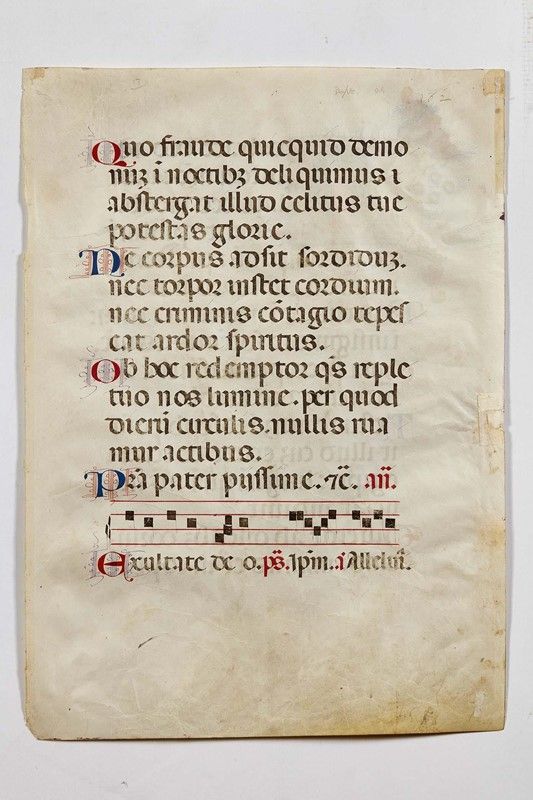 Quo fraude quicquid demo
nuʒ ī noctibʒ deliquimus ı
abstergat illud celitus tue
potestas glorie.
Ne corpus adsit sordiduʒ.
nec torpor instet cordium.
nec criminis cōtagio tepes
cat ardor spiritus.
Ob hoc redemptor q̄s reple
tuo nos lumine. per quod
dierū circulis. nullis rua
mur actibus.
Pr̄a pater pijssime. ⁊c̄. añ.
Exultate de o. ps̄. Ip̄m. .i Alleluı̄.